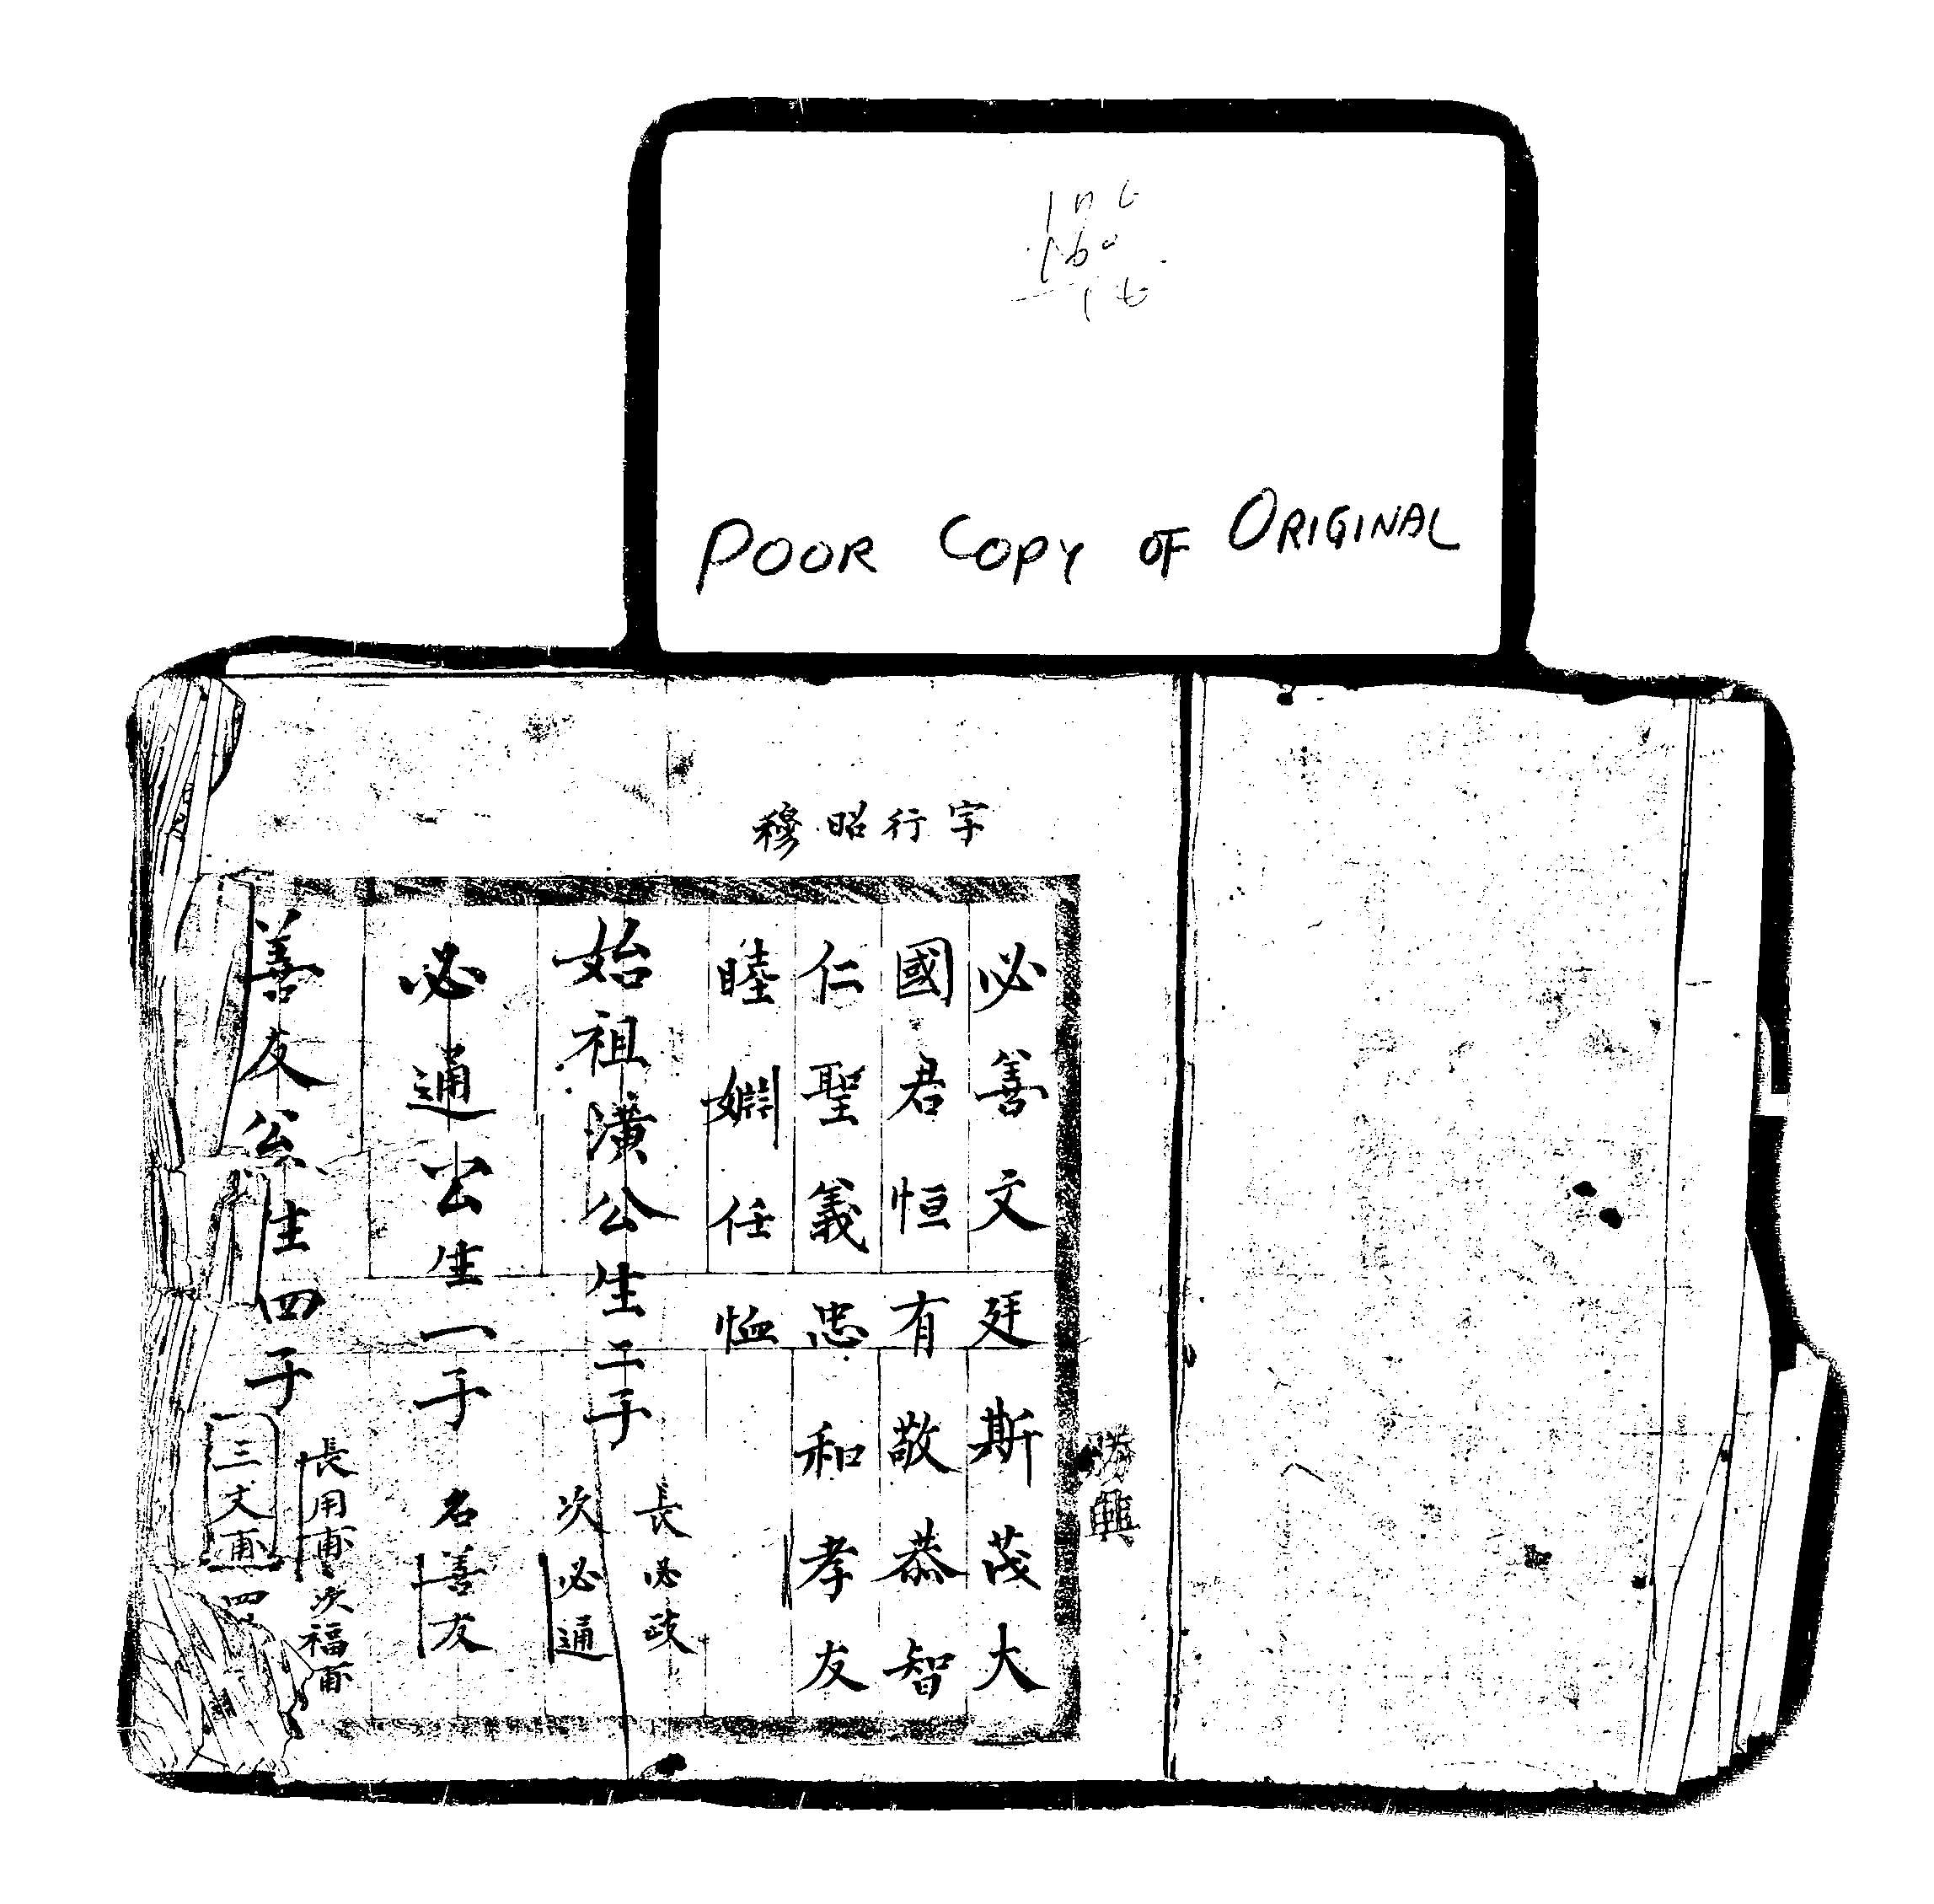 POOR COPY OF ORIGINAL
字行昭穆
勝興
必善文廷斯茂大
國君恒有敬恭智
仁聖義忠和孝友
睦婣任恤
始祖潢公生二子
長必政
次必通
必通公生一子
名善友
善友公生四子
長用甫次福甫
三文甫四